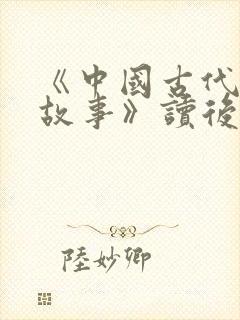 《中國古代
故事》讀後
陸妙卿